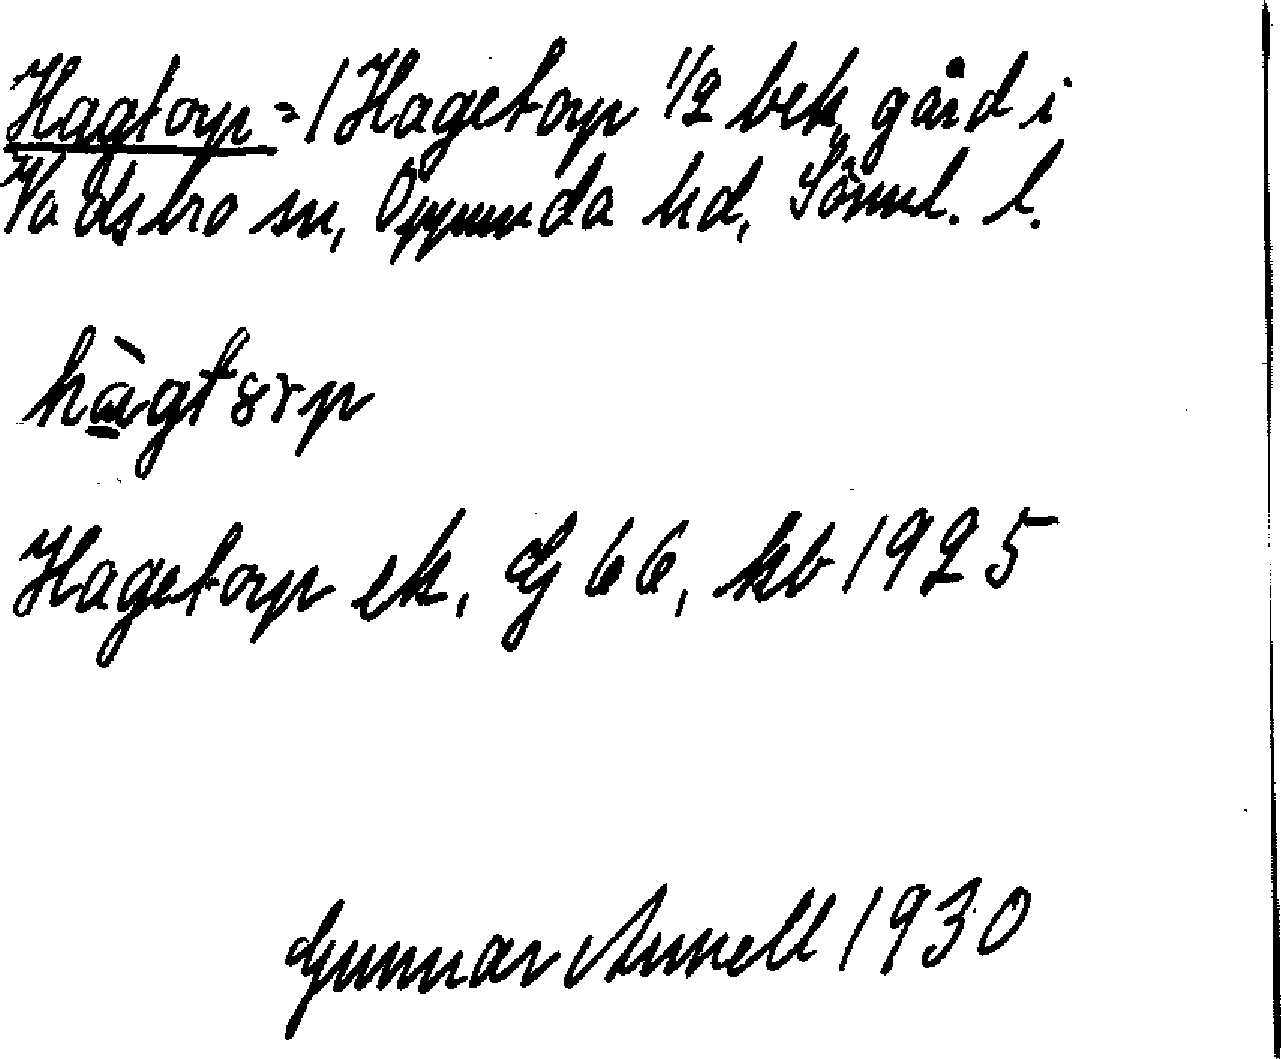 Hagtorp = / Hagetorp 1/2 bek. gård i
Vadsbro sn, Oppunda hd, Söml. l.
hàgtorp
Hagetorp ek. G 66, kb 1925
Gunnar 1930